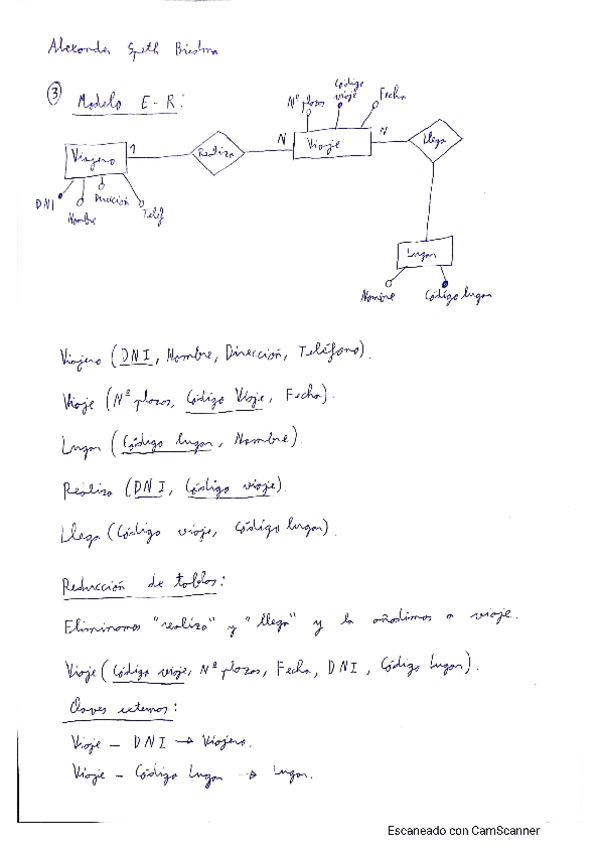 Alexander Speth Biedma
③ Modelo E-R:
Nº plazas
Código viaje
Fecha
Viajero
1
Realiza
N
Viaje
N
Llega
DNI
Nombre
Dirección
Teléf
Lugar
Nombre
Código lugar
Viajero (DNI, Nombre, Dirección, Teléfono).
Viaje (Nº plazas, Código Viaje, Fecha).
Lugar (Código lugar, Nombre).
Realiza (DNI, Código viaje).
Llega (Código viaje, Código lugar).
Reducción de tablas:
Eliminamos "realiza" y "llega" y la añadimos a viaje.
Viaje (Código viaje, Nº plazas, Fecha, DNI, Código lugar).
Claves externas:
Viaje – DNI → Viajero.
Viaje – Código Lugar → Lugar.
Escaneado con CamScanner